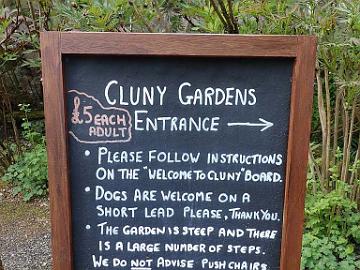 CLUNY GARDENS
£5 EACH
ADULT
ENTRANCE →
• PLEASE FOLLOW INSTRUCTIONS
ON THE "WELCOME TO CLUNY" BOARD.
• DOGS ARE WELCOME ON A
SHORT LEAD PLEASE, THANK YOU.
• THE GARDEN IS STEEP AND THERE
IS A LARGE NUMBER OF STEPS.
WE DO NOT ADVISE PUSHCHAIRS